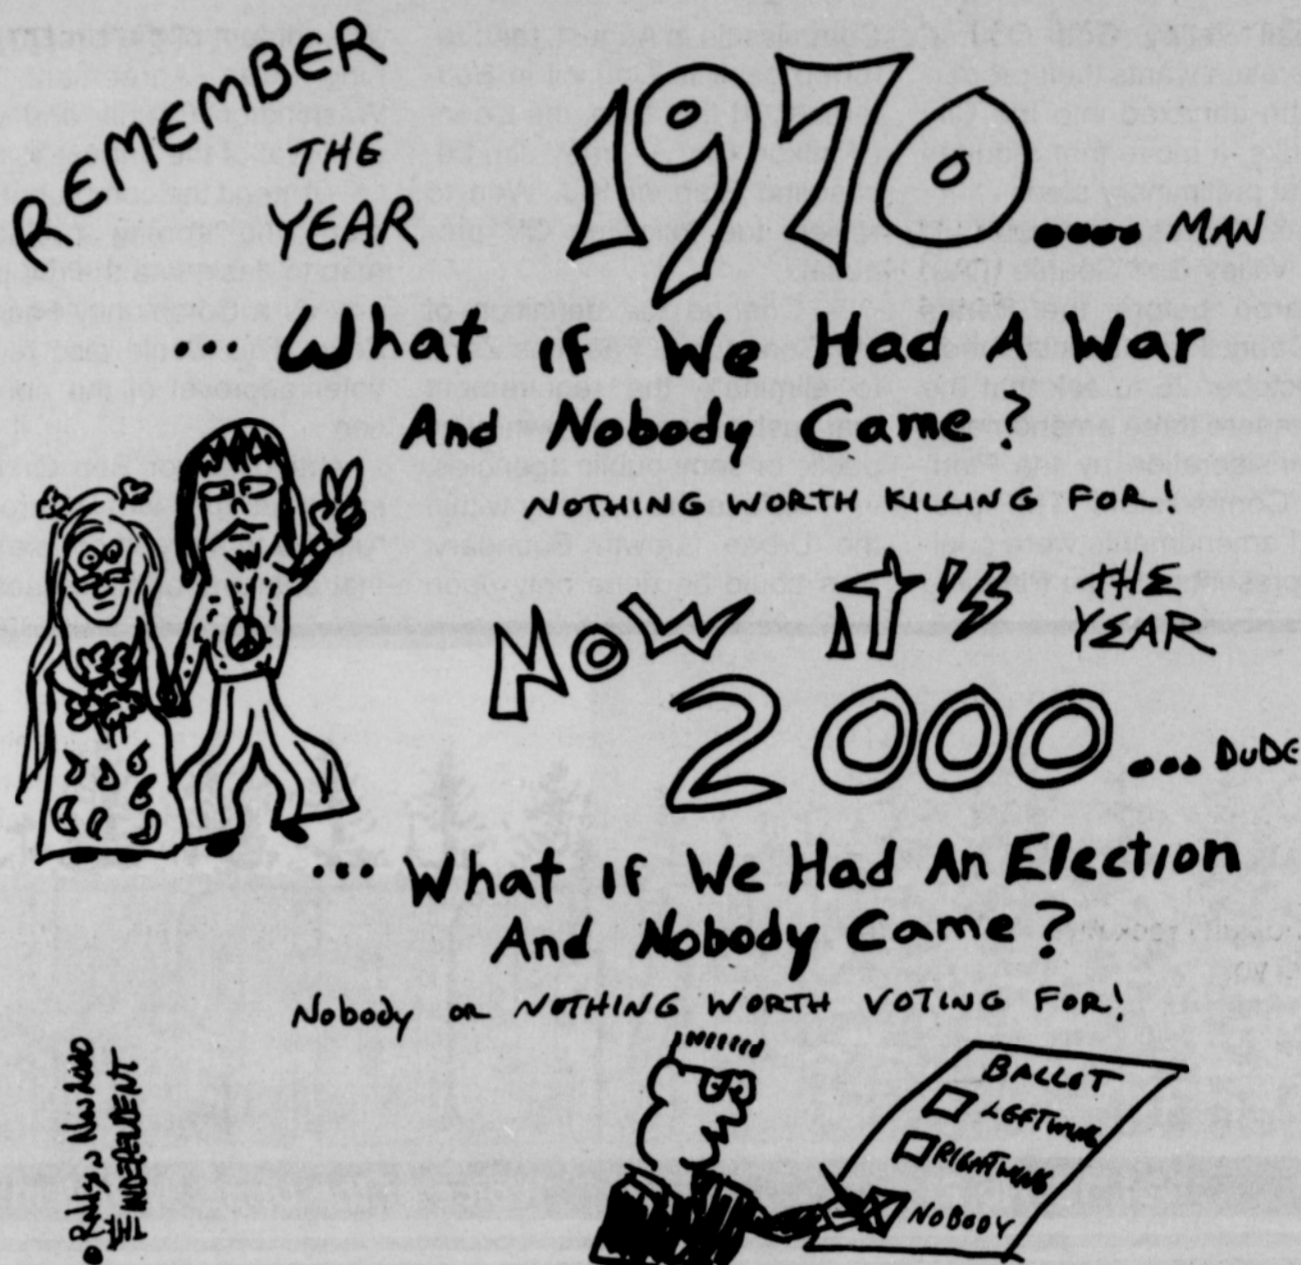 REMEMBER
THE
YEAR
1970.... MAN
... What If We Had A War
And Nobody Came?
NOTHING WORTH KILLING FOR!
NOW IT'S THE
YEAR
2000... DUDE
... What If We Had An Election
And Nobody Came?
Nobody or NOTHING WORTH VOTING FOR!
BALLOT
LEFTWING
RIGHTWING
NOBODY
THE INDEPENDENT